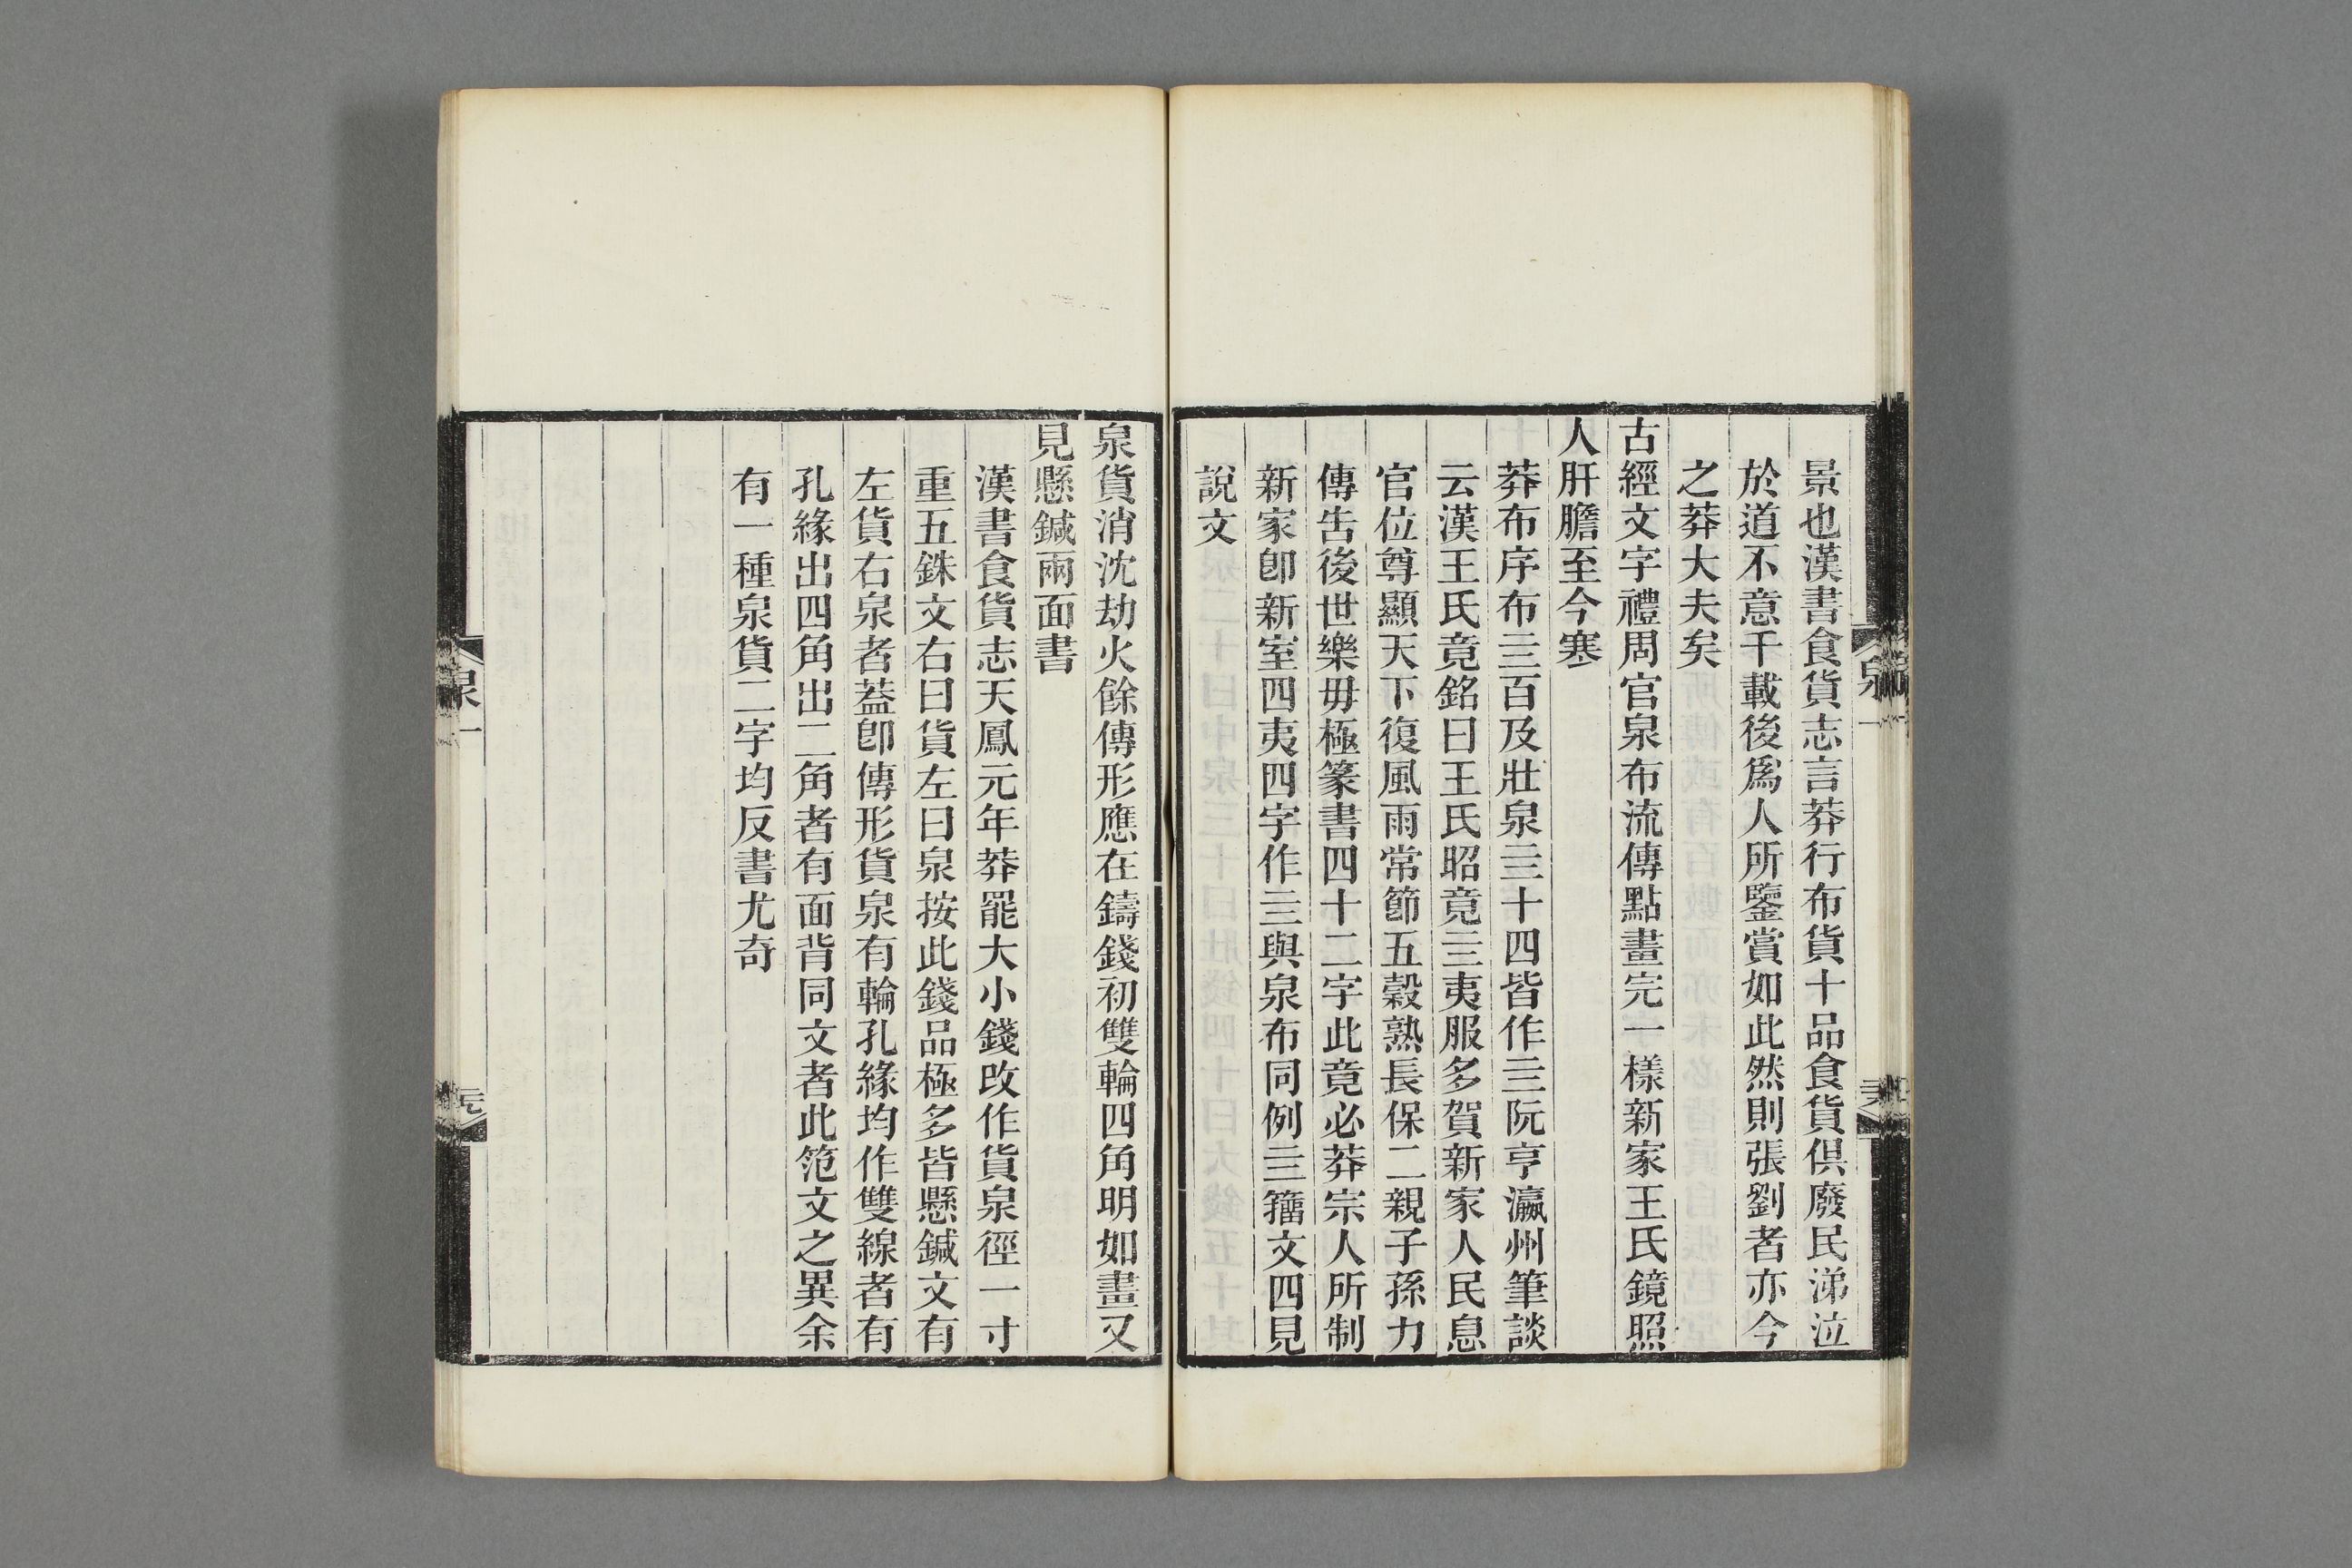 景也漢書食貨志言莽行布貨十品食貨俱廢民涕泣
於道不意千載後爲人所鑒賞如此然則張劉者亦今
之莽大夫矣
古經文字禮周官泉布流傳點畫完一樣新家王氏鏡照
人肝膽至今寒
莽布序布亖百及壯泉亖十四皆作亖阮亨瀛州筆談
云漢王氏竟銘曰王氏昭竟亖夷服多賀新家人民息
官位尊顯天下復風雨常節五穀熟長保二親子孫力
傳吿後世樂毋極篆書四十二字此竟必莽宗人所制
新家卽新室四夷四字作亖與泉布同例亖籒文四見
說文
泉貨消沈劫火餘傳形應在鑄錢初雙輪四角明如畫又
見懸鍼兩面書
漢書食貨志天鳳元年莽罷大小錢改作貨泉徑一寸
重五銖文右曰貨左曰泉按此錢品極多皆懸鍼文有
左貨右泉者蓋卽傳形貨泉有輪孔緣均作雙線者有
孔緣出四角出二角者有面背同文者此笵文之異余
有一種泉貨二字均反書尤奇
泉一